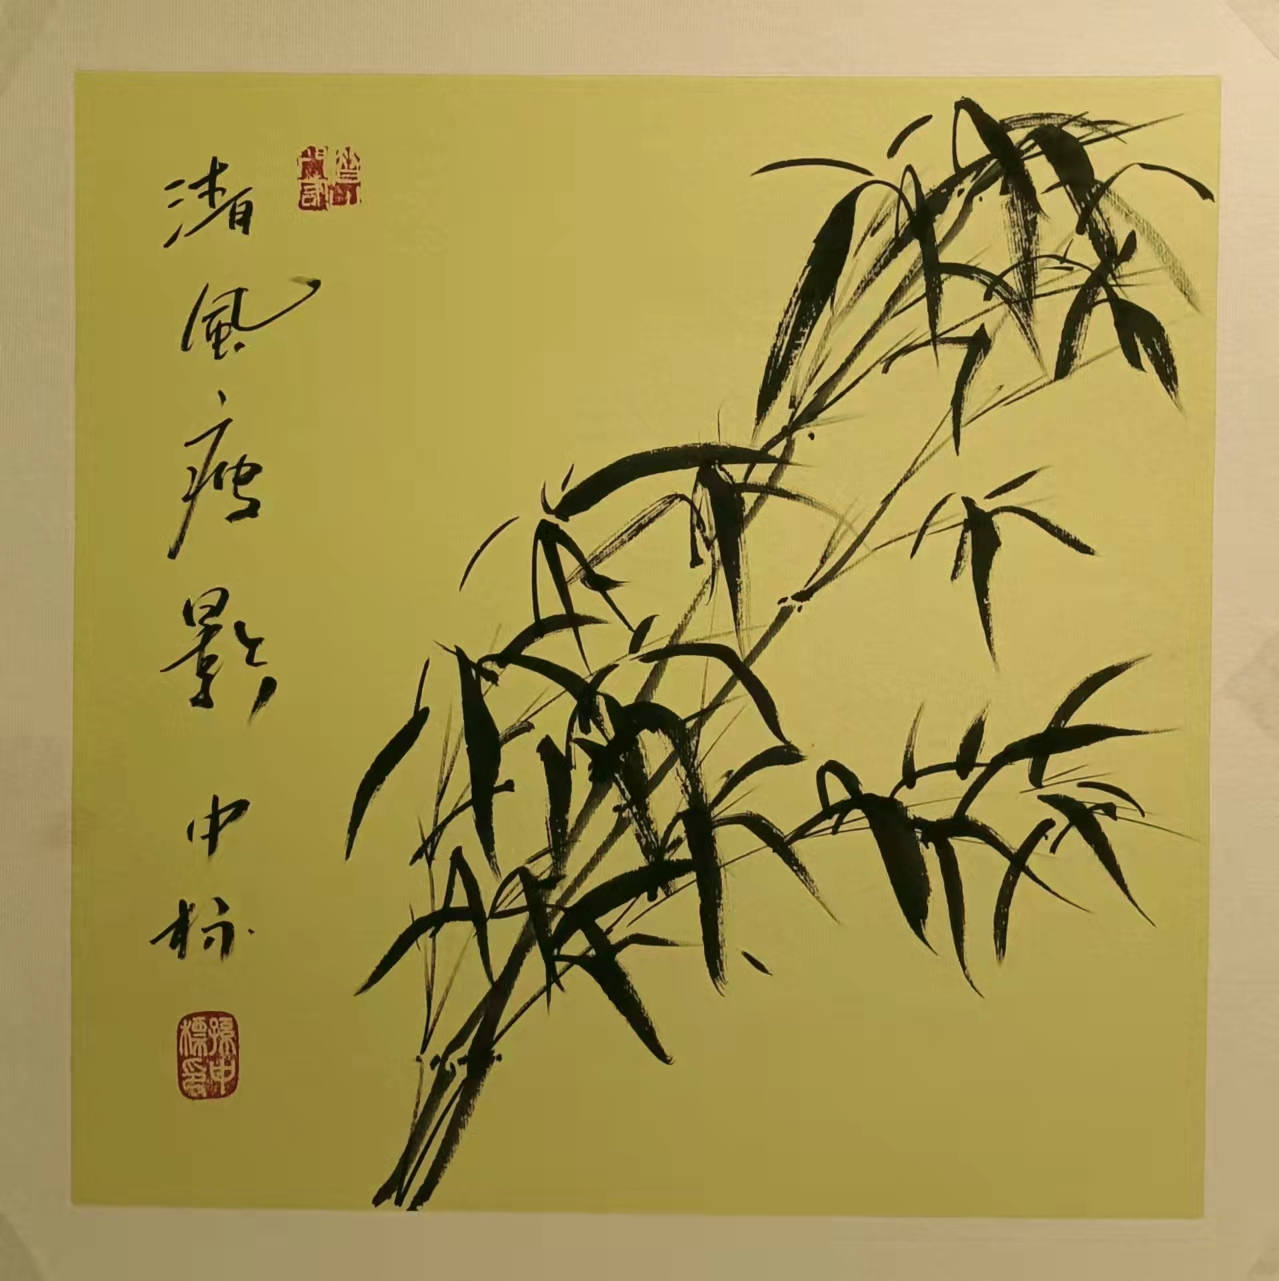 清风瘦影
中标
孙中標印